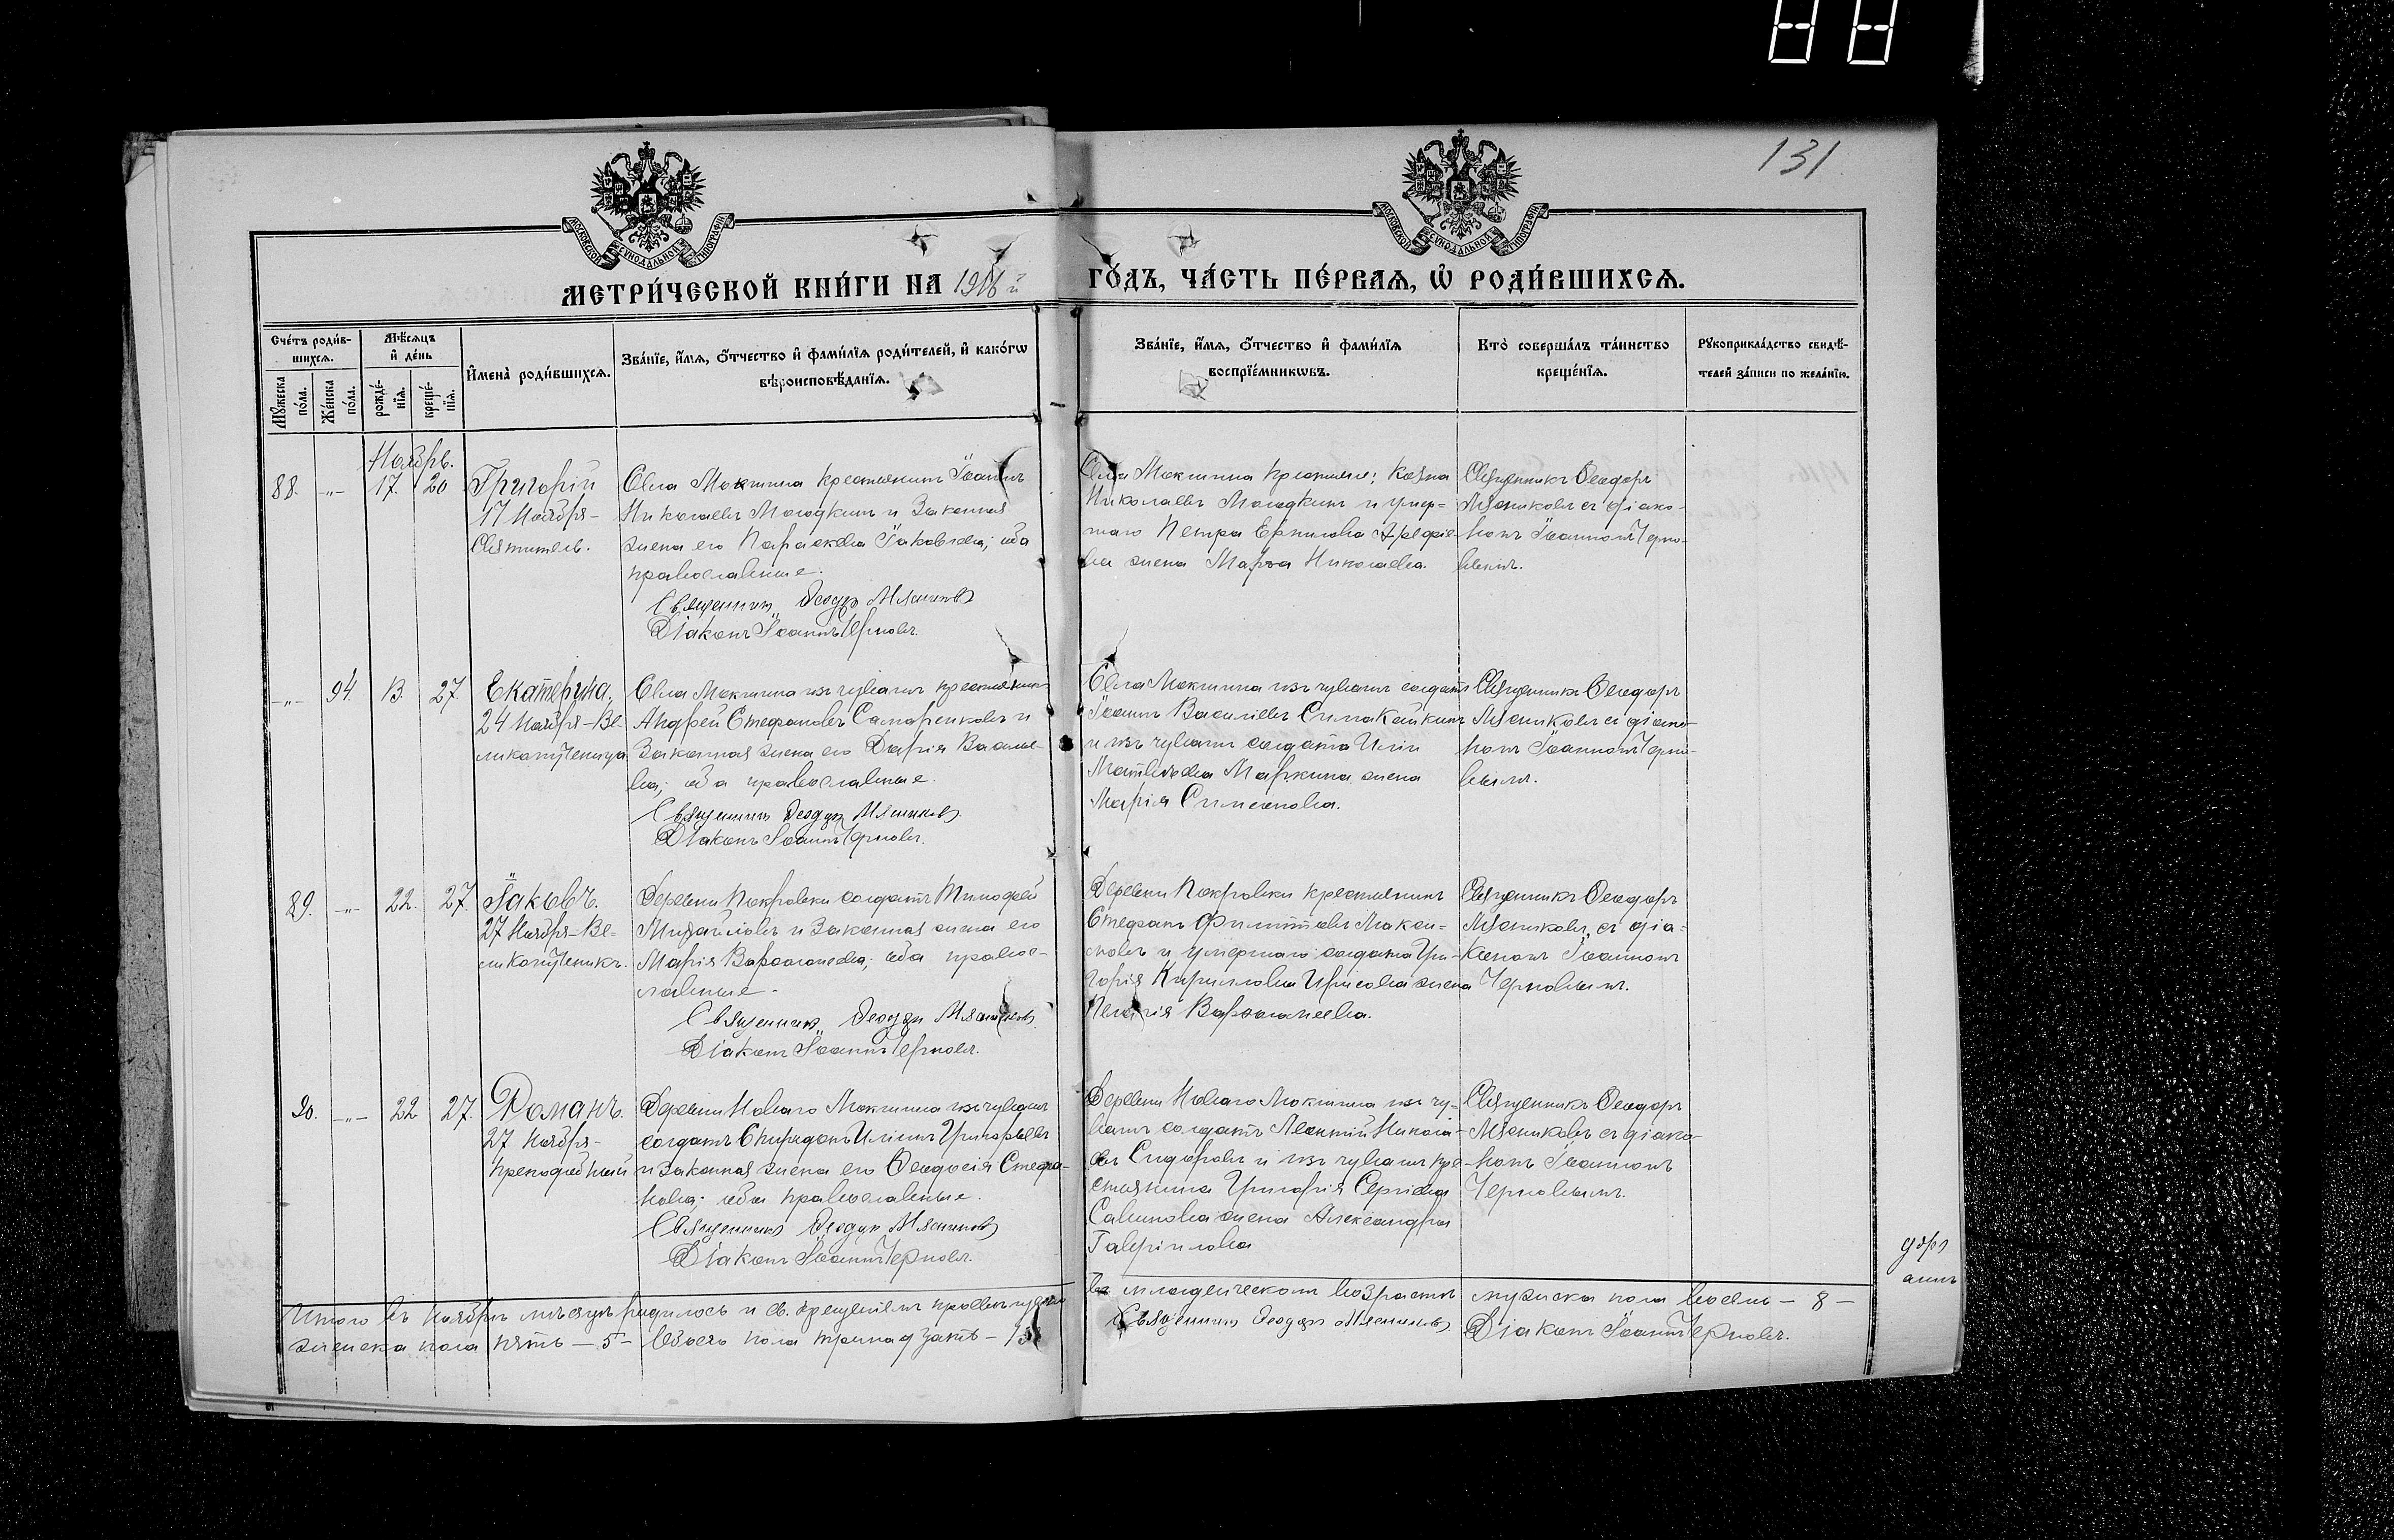 131
МЕТРИ́ЧЕСКОЙ КНИ́ГИ НА 1916 й ГО́ДЪ, ЧА́СТЬ ПЕ́РВАѦ, Ѡ РОДИ́ВШИХСѦ.
МОСКОВСКОЙ СѴНОДАЛЬНОЙ ТИПОГРАФІИ
МОСКОВСКОЙ СѴНОДАЛЬНОЙ ТИПОГРАФІИ
Сче́тъ роди́в-
шихсѧ.
Мꙋ́жеска по́ла.
Же́нска по́ла.
Мѣ́сѧцъ
и҆ де́нь
рожде́-нїѧ.
креще́-нїѧ.
И҆мена̀ роди́вшихсѧ.
Зва́нїе, и҆́мѧ, ѻ҆́тчество и҆ фами́лїѧ роди́телей, и҆ како́гѡ
вѣроисповѣ́данїѧ.
Зва́нїе, и҆́мѧ, ѻ҆́тчество и҆ фами́лїѧ
воспрїе́мникѡвъ.
Кто̀ соверша́лъ та́инство
креще́нїѧ.
Рꙋкоприкла́дство свидѣ́-
телей за́писи по жела́нїю.
Ноябрь.
88. -"- 17. 20
Григорій
17 Ноября-
Святитель.
Села Мокшина крестьянинъ Іоаннъ
Николаевъ Молодкинъ и законная
жена его Параскева Іаковлева; оба
православные.
Священникъ Ѳеодоръ Мясниковъ
Діаконъ Іоаннъ Черновъ.
Села Мокшина крестьяне: Козма
Николаевъ Молодкинъ и умер-
шаго Петра Ермилова
жена Марѳа Николаева.
Священникъ Ѳеодоръ
Мясниковъ съ діако-
номъ Іоанномъ Черно-
вымъ.
-"- 94. 13. 27.
Екатерина.
24 Ноября-Ве-
ликомученица
Села Мокшина изъ чувашъ крестьянинъ
Андрей Стефановъ Самаренковъ и
законная жена его Дарія Василье-
ва; оба православные.
Священникъ Ѳеодоръ Мясниковъ.
Діаконъ Іоаннъ Черновъ.
Села Мокшина изъ чувашъ солдатъ
Іоаннъ Василіевъ Симакайкинъ
и изъ чувашъ солдата Иліи
Матвѣева Маркина жена
Марія Симеонова.
Священникъ Ѳеодоръ
Мясниковъ съ діако-
номъ Іоанномъ Черно-
вымъ.
89. -"- 22. 27.
Іаковъ.
27 Ноября-Ве-
ликомученикъ.
Деревни Покровки солдатъ Тимоѳей
Михайловъ и законная жена его
Марія Варѳоломеева; оба правос-
лавные.
Священникъ Ѳеодоръ Мясниковъ.
Діаконъ Іоаннъ Черновъ.
Деревни Покровки крестьянинъ
Стефанъ Филипповъ Макси-
мовъ и умершаго солдата Гри-
горія Кириллова жена
Пелагія Варѳоломеева.
Священникъ Ѳеодоръ
Мясниковъ, съ діа-
кономъ Іоанномъ
Черновымъ.
90. -"- 22 27.
Романъ.
27 Ноября-
Преподобный
Деревни Новаго Мокшина изъ чувашъ
солдатъ Спиридонъ Иліинъ Григорьевъ
и законная жена его Ѳеодосія Стефа-
нова; оба православные.
Священникъ Ѳеодоръ Мясниковъ
Діаконъ Іоаннъ Черновъ.
Деревни Новаго Мокшина изъ чу-
вашъ солдатъ Леонтій Никола-
евъ Сидоровъ и изъ чувашъ кре-
стьянина Григорія Сергіева
Савинова жена Александра
Гавріилова
Священникъ Ѳеодоръ
Мясниковъ съ діако-
номъ Іоанномъ
Черновымъ.
Итого въ Ноябрѣ мѣсяцѣ родилось и св. крещеніемъ просвѣщено въ младенческомъ возрастѣ мужеска пола восемь - 8 -
женска пола пять - 5 - обоего пола тринадцать - 13
Священникъ Ѳеодоръ Мясниковъ.
Діаконъ Іоаннъ Черновъ.